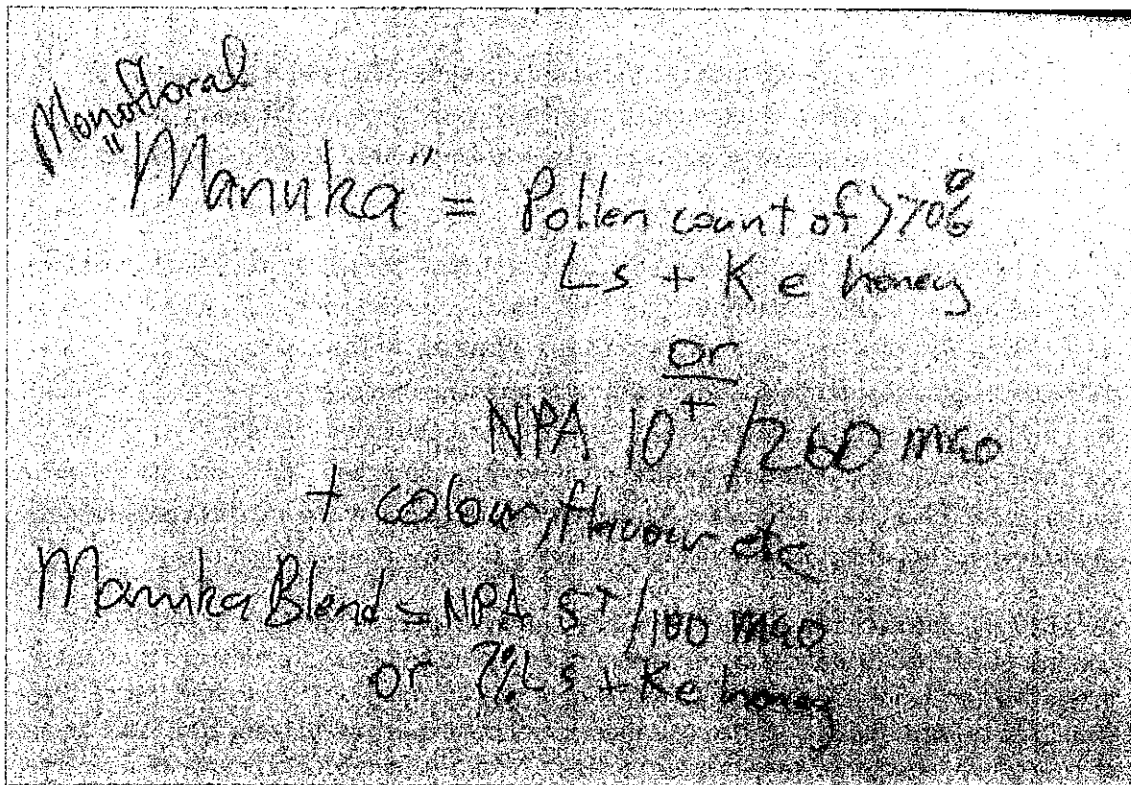 Monofloral
"Manuka" = Pollen count of >70%
Ls + Ke honey
or
NPA 10+ / 260 mgo
+ colour, flavour etc
Manuka Blend = NPA 5+ / 100 mgo
or ?% Ls + Ke honey